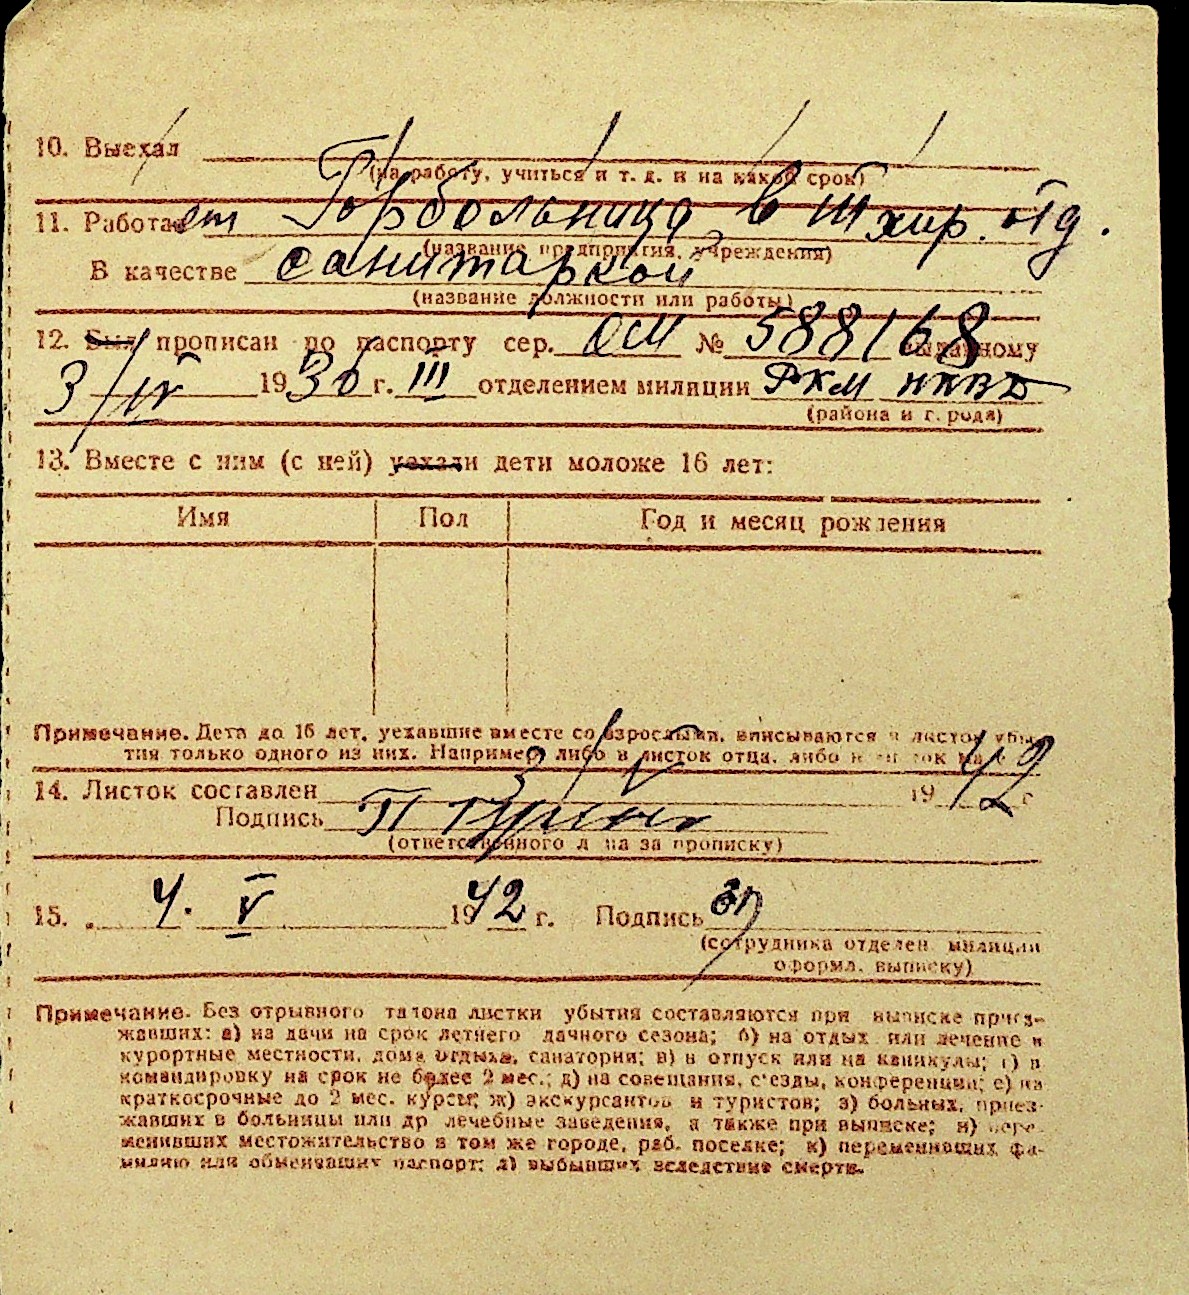 10. Выехал
(на работу, учиться и т. д. и на какой срок)
11. Работает Горбольница в III хир. отд.
(название предприятия, учреждения)
В качестве санитаркой
(название должности или работы)
12. Был прописан по паспорту сер. ОМ № 588168 выданному
3/IV 1936 г. III отделением милиции РКМ НКВД
(района и города)
13. Вместе с ним (с ней) уехали дети моложе 16 лет:
Имя Пол Год и месяц рождения
Примечание. Дети до 16 лет, уехавшие вместе со взрослыми, вписываются в листок убы-
тия только одного из них. Например либо в листок отца, либо в листок
14. Листок составлен 3/V 1942 г
Подпись
(ответственного лица за прописку)
15. 4. V 1942 г. Подпись
(сотрудника отделен. милиции
оформл. выписку)
Примечание. Без отрывного талона листки убытия составляются при выписке приез-
жавших: а) на дачи на срок летнего дачного сезона; б) на отдых или лечение в
курортные местности, дома отдыха, санатории; в) в отпуск или на каникулы; г) в
командировку на срок не более 2 мес.; д) на совещания, съезды, конференции; е) на
краткосрочные до 2 мес. курсы; ж) экскурсантов и туристов; з) больных, приез-
жавших в больницы или др лечебные заведения, а также при выписке; и) пере-
менивших местожительство в том же городе, раб. поселке; к) переменивших фа-
милию или обменявших паспорт; л) выбывших вследствие смерти.